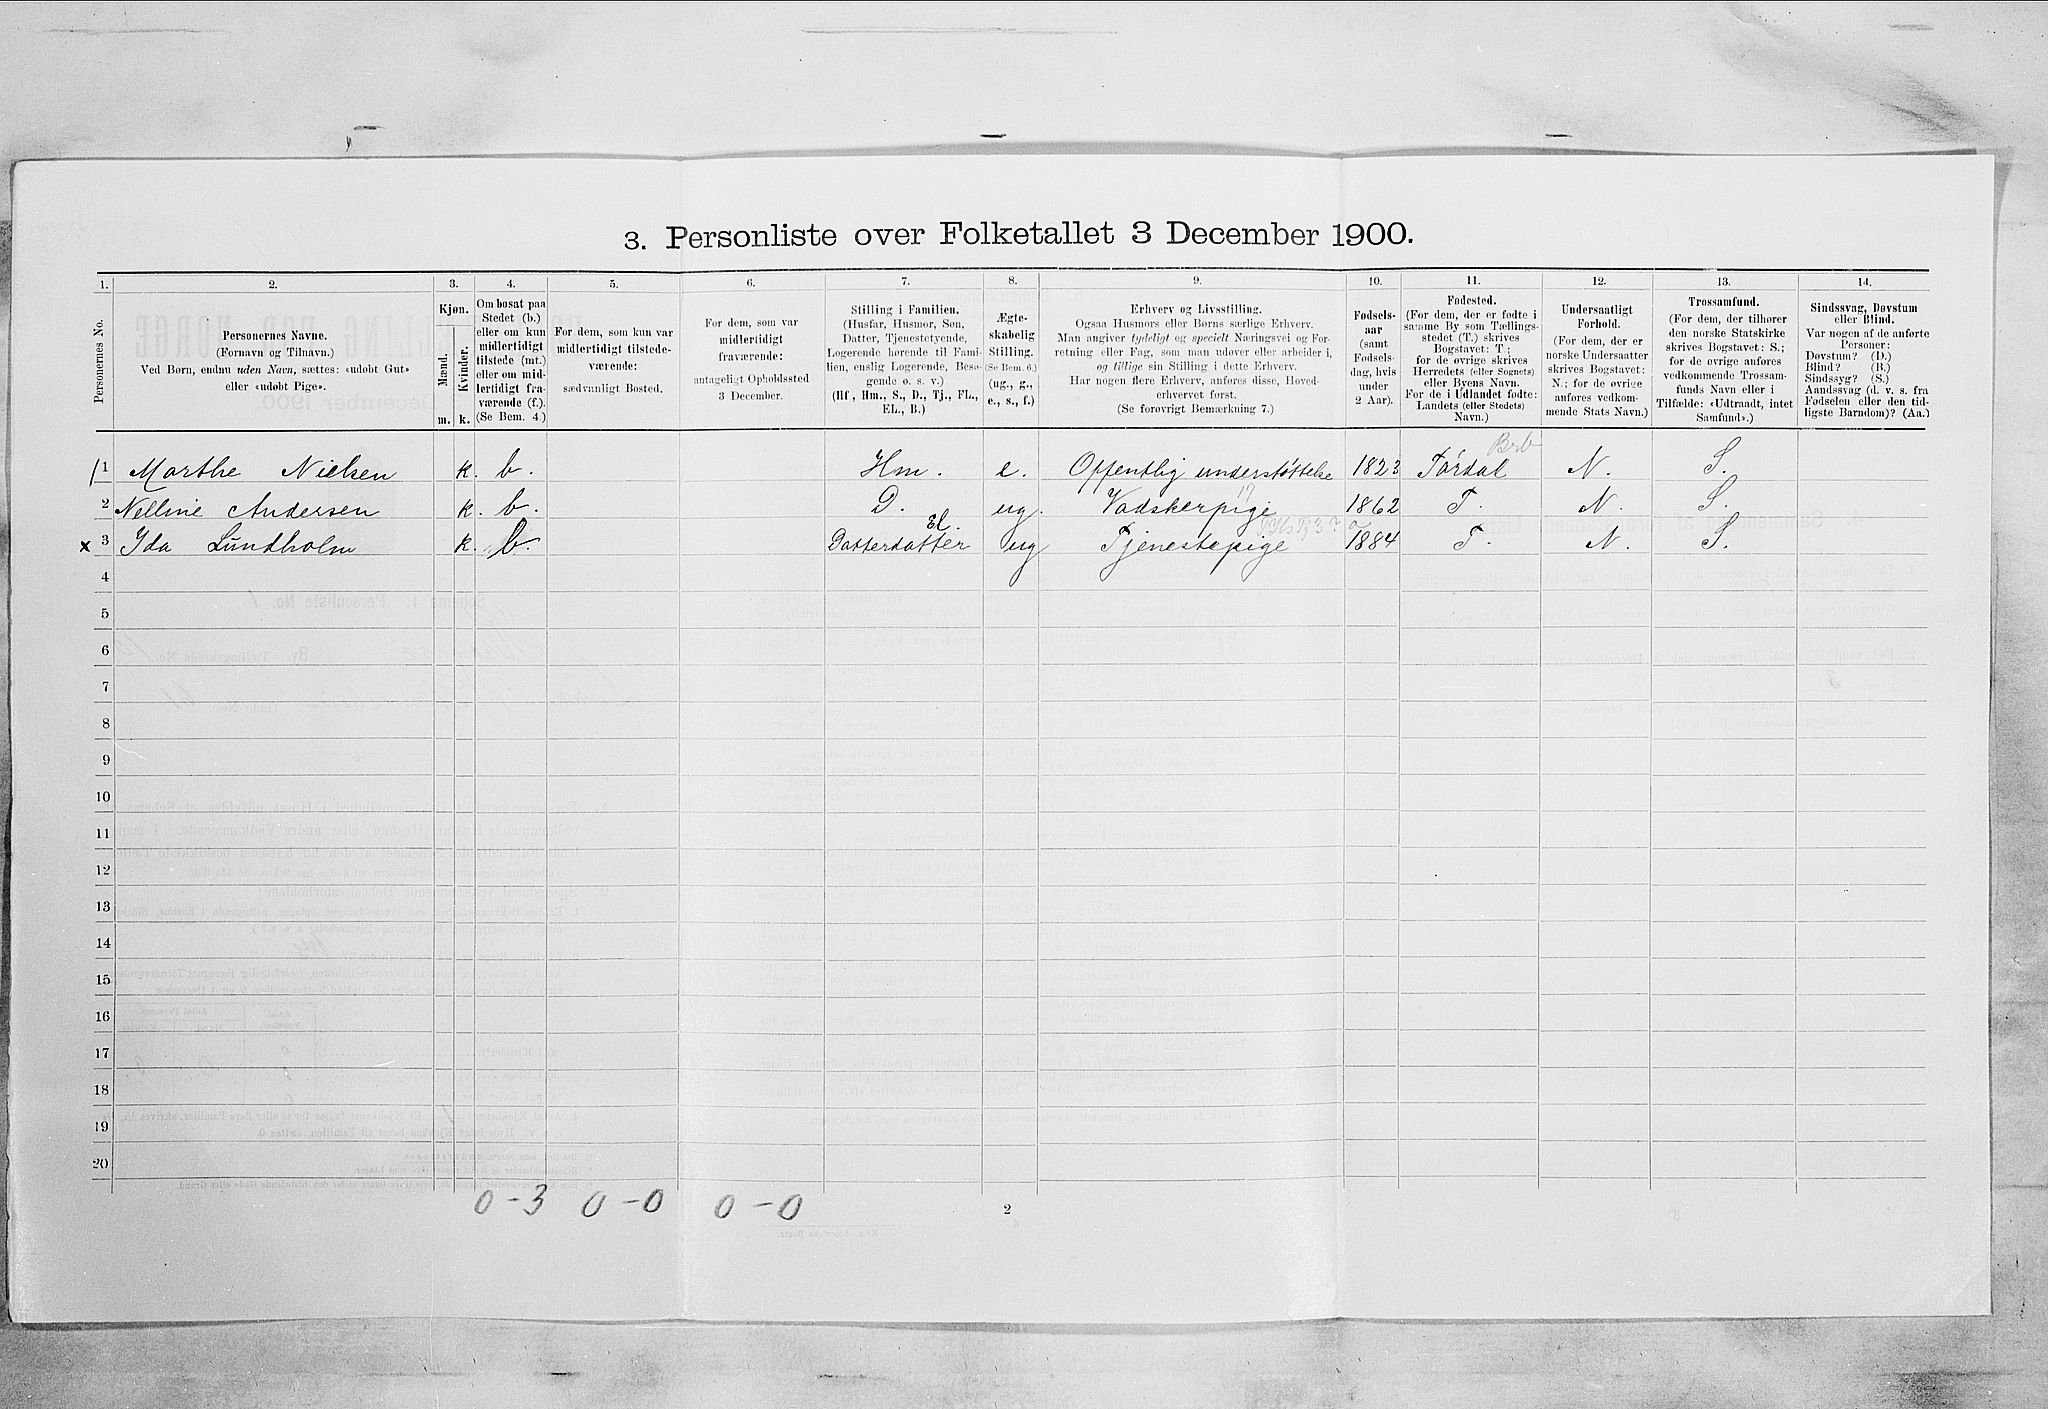 3. Personliste over Folketallet 3 December 1900.
1. 2. 3. 4. 5. 6. 7. 8. 9. 10. 11. 12. 13. 14.
Personernes No.
Personernes Navne.
(Fornavn og Tilnavn.)
Ved Børn, endnu uden Navn, sættes: «udøbt Gut»
eller «udøbt Pige».
Kjøn.
Mænd.
Kvinder.
m. k.
Om bosat paa
Stedet (b.)
eller om kun
midlertidigt
tilstede (mt.)
eller om mid-
lertidigt fra-
værende (f.).
(Se Bem. 4.)
For dem, som kun var
midlertidigt tilstede-
værende:
sædvanligt Bosted.
For dem, som var
midlertidigt
fraværende:
antageligt Opholdssted
3 December.
Stilling i Familien.
(Husfar, Husmor, Søn,
Datter, Tjenestetyende,
Logerende hørende til Fami-
lien, enslig Logerende, Besø-
gende o. s. v.)
(Hf, Hm., S., D., Tj., FL.,
EL., B.)
Ægte-
skabelig
Stilling.
(Se Bem. 6.)
(ug., g.,
e., s., f.)
Erhverv og Livsstilling.
Ogsaa Husmors eller Børns særlige Erhverv.
Man angiver tydeligt og specielt Næringsvei og For-
retning eller Fag, som man udøver eller arbeider i,
og tillige sin Stilling i dette Erhverv.
Har nogen flere Erhverv, anføres disse, Hoved-
erhvervet først.
(Se forøvrigt Bemærkning 7.)
Fødsels-
aar
(samt
Fødsels-
dag, hvis
under
2 Aar).
Fødested.
(For dem, der er fødte i
samme By som Tællings-
stedet (T.) skrives
Bogstavet: T.;
for de øvrige skrives
Herredets (eller Sognets)
eller Byens Navn.
For de i Udlandet fødte:
Landets (eller Stedets)
Navn.)
Undersaatligt
Forhold.
(For dem, der er
norske Undersaatter
skrives Bogstavet:
N.; for de øvrige
anføres vedkom-
mende Stats Navn.)
Trossamfund.
(For dem, der tilhører
den norske Statskirke
skrives Bogstavet: S.;
for de øvrige anføres
vedkommende Trossam-
funds Navn eller i
Tilfælde: «Udtraadt, intet
Samfund».)
Sindssvag, Døvstum
eller Blind.
Var nogen af de anførte
Personer:
Døvstum? (D.)
Blind? (B.)
Sindssyg? (S.)
Aandssvag (d. v. s. fra
Fødselen eller den tid-
ligste Barndom)? (Aa.)
Brb
1 Marthe Nielsen k. b. Hm. e. Offentlig understøttelse 1823 Tørdal N. S.
2 Nelline Andersen k. b. D. ug. Vadskerpige 1862 T. N. S.
El.
x 3 Ida Lundholm k. b. Datterdatter ug Tjenestepige 1884 T. N. S.
4
5
6
7
8
9
10
11
12
13
14
15
16
17
18
19
20
0 - 3 0 - 0 0 - 0
2